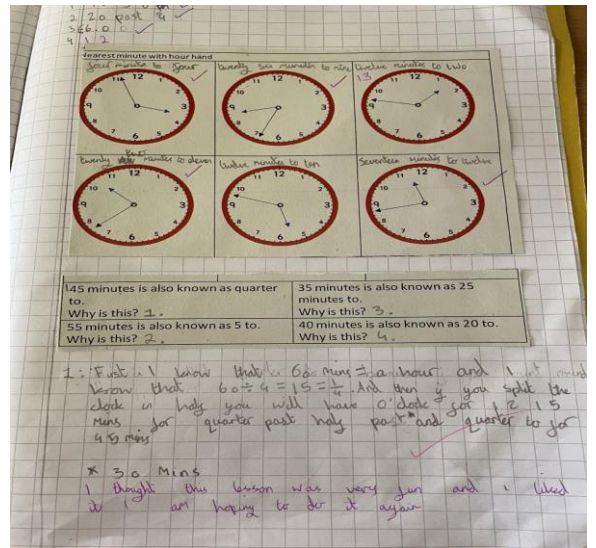 2 20 past 4
3 6.00
4 12
Nearest minute with hour hand
four minutes to four
twenty six minutes to nine
twelve minutes to two
13
twenty two minutes to eleven
twelve minutes to ten
Seventeen minutes to twelve
45 minutes is also known as quarter
to.
Why is this? 1.
35 minutes is also known as 25
minutes to.
Why is this? 3.
55 minutes is also known as 5 to.
Why is this? 2.
40 minutes is also known as 20 to.
Why is this? 4.
1: First I know that 60 mins = a hour and I
know that 60÷4=15=¼. And then if you split the
clock in half you will have O'clock for 12 15
mins for quarter past half past* and quarter to for
45 mins
* 30 Mins
I thought this lesson was very fun and i liked
it I am hoping to do it again